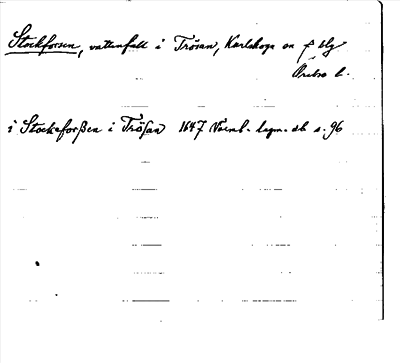 Stockforsen, vattenfall i Trösan, Karlskoga sn f. blg
Örebro l.
i Stockeforßen i Tröſan 1647 Värml. lagm. db s. 96